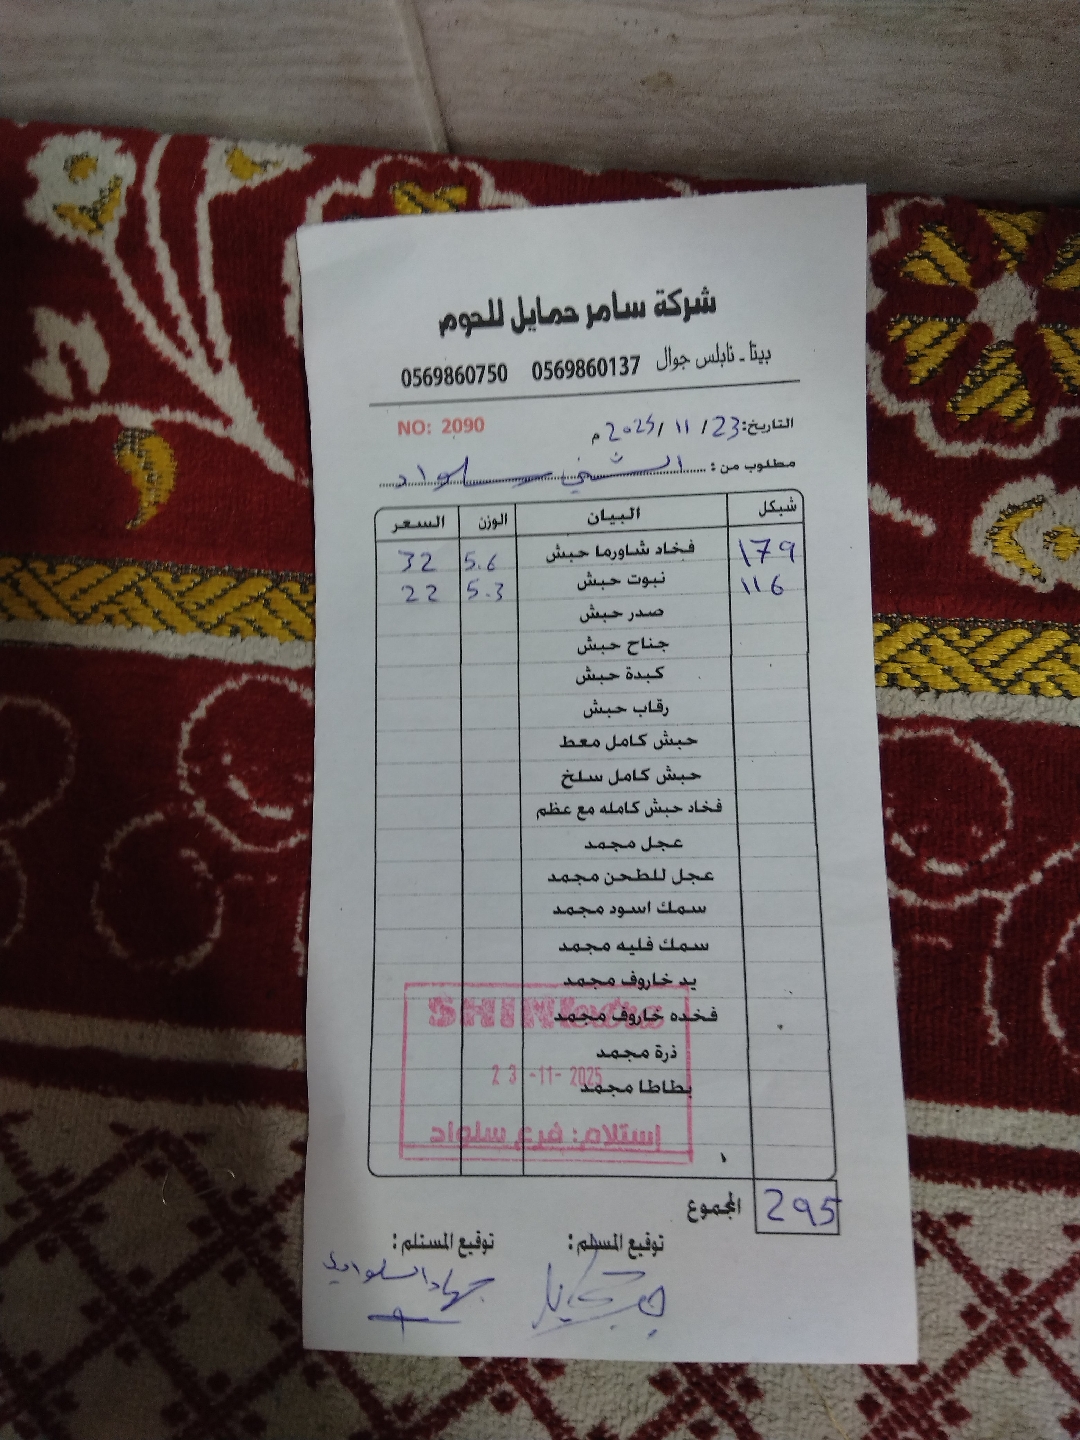 شركة سامر حمايل للحوم
بيتا - نابلس جوال 0569860137 0569860750
NO: 2090
التاريخ: 23 / 11 / 2025 م
مطلوب من : الشني سلواد
شيكل البيان الوزن السعر
179 فخاد شاورما حبش 5.6 32
116 نبوت حبش 5.3 22
صدر حبش
جناح حبش
كبدة حبش
رقاب حبش
حبش كامل معط
حبش كامل سلخ
فخاد حبش كامله مع عظم
عجل مجمد
عجل للطحن مجمد
سمك اسود مجمد
سمك فليه مجمد
يد خاروف مجمد
فخده خاروف مجمد
ذرة مجمد
بطاطا مجمد
23 -11- 2025
إستلام: فرع سلواد
المجموع 295
توقيع المسلم : توقيع المستلم :